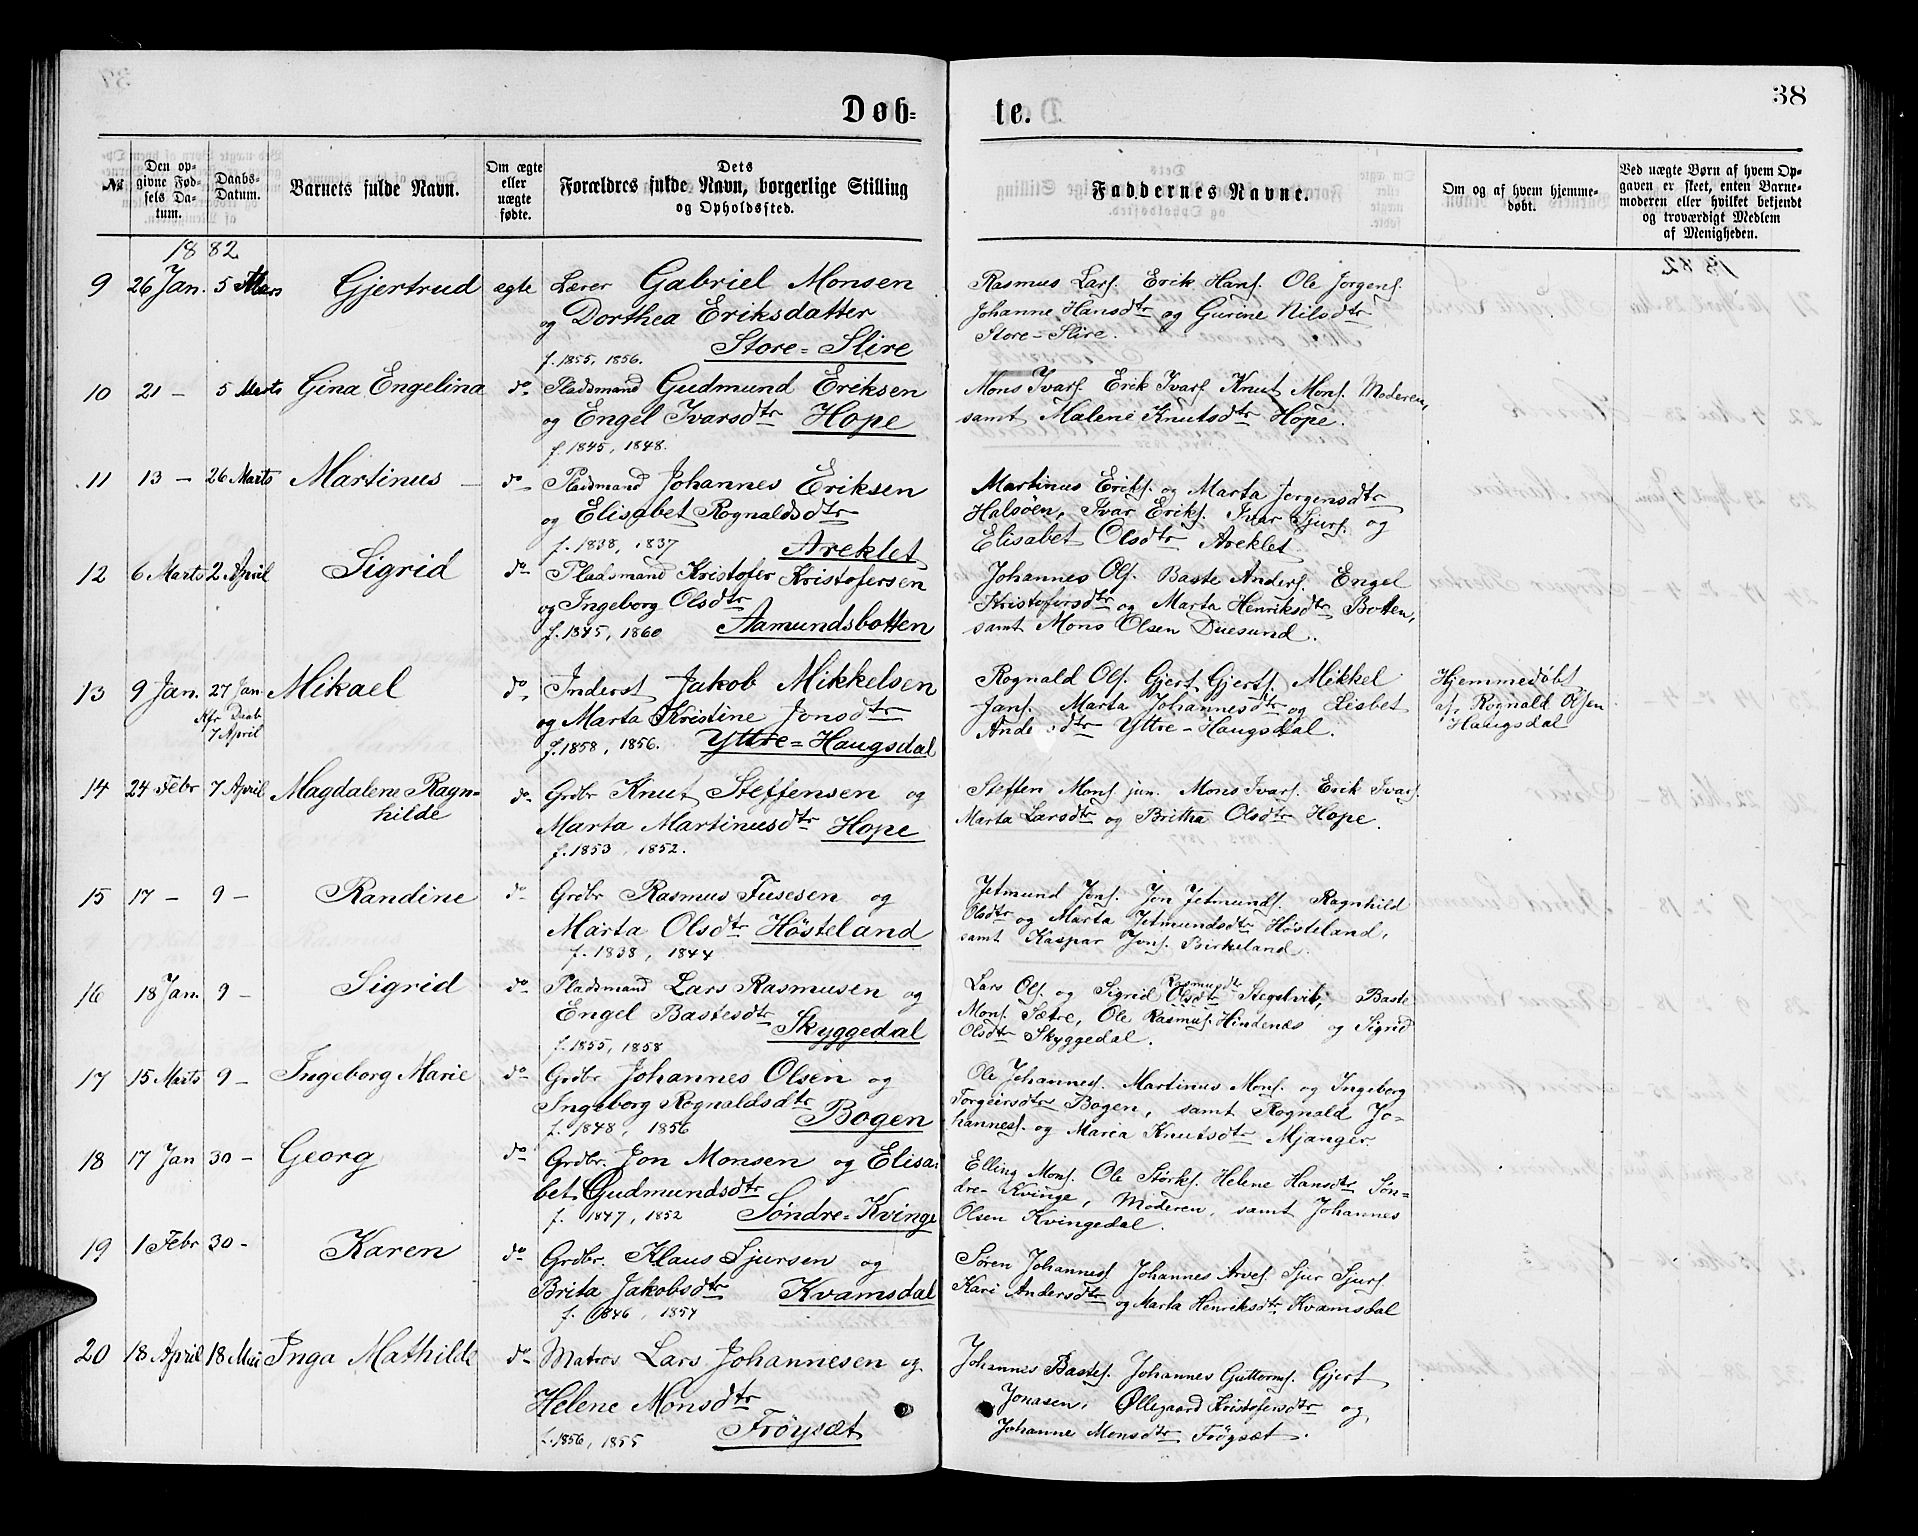 38
Døb-
te.
№
Den op-
givne Fød-
sels Da-
tum.
Daabs-
Datum.
Barnets fulde Navn.
Om ægte
eller
uægte
fødte.
Dets
Forældres fulde Navn, borgerlige Stilling
og Opholdssted.
Faddernes Navne.
Om og af hvem hjemme-
døbt.
Ved uægte Børn af hvem Op-
gaven er skeet, enten Barne-
moderen eller hvilket bekjendt
og troværdigt Medlem
af Menigheden.
1882
9 26 Jan. 5 Mars Gjertrud ægte Lærer Gabriel Monsen
og Dorthea Eriksdatter
f. 1855, 1856. Store-Slire
Rasmus Larss. Erik Hanss. Ole Jørgenss.
Johanne Hansdtr og Gurine Nilsdtr
Store-Slire.
10 21 - 5 Marts Gina Engelina do Pladsmand Gudmund Eriksen
og Engel Ivarsdtr Hope
f. 1845, 1848.
Mons Ivars. Erik Ivars. Knut Mons. Moderen,
samt Malene Knutsdtr Hope.
11 13 - 26 Marts Martinus - do Pladsmand Johannes Eriksen
og Elisabet Rognaldsdtr
f. 1838, 1837 Areklet
Martinus Eriks. og Marta Jørgensdtr
Halsöen, Ivar Eriks. Ivar Sjurs. og
Elisabet Olsdtr Areklet
12 6 Marts 2 April Sigrid do Pladsmand Kristofer Kristofersen
og Ingeborg Olsdtr
f. 1845, 1860 Aamundsbotten
Johannes Ols. Baste Anders. Engel
Kristofersdtr og Marta Henriksdtr Botten,
samt Mons Olsen Duesund.
13 9 Jan. 27 Jan. Mikael do Inderst Jakob Mikkelsen
Kfr Daab
7 April
og Marta Kristine Jonsdtr
f. 1858, 1856. Yttre-Haugsdal
Rognald Ols. Gjert Gjerts. Mikkel
Jans. Marta Johannesdtr og Lisbet
Ande sdtr Yttre-Haugsdal.
Hjemmedøbt
af Rognald Olsen
Haugsdal
14 24 Febr 7 April Magdalene Ragn-
hilde do Grdbr Knut Steffensen og
Marta Martinusdtr Hope
f. 1853, 1852.
Steffen Mons. jun. Mons Ivars. Erik Ivars.
Marta Larsdtr og Britha Olsdtr Hope.
15 17 - 9 - Randine do Grdbr Rasmus Fusesen og
Marta Olsdtr Hösteland
f. 1838, 1844
Jetmund Jons. Jon Jetmunds. Ragnhild
Olsdtr og Marta Jetmundsdtr Hösteland,
samt Kaspar Jons. Birkeland.
16 18 Jan. 9 - Sigrid do Pladsmand Lars Rasmusen og
Engel Bastesdtr
f. 1855, 1858 Skyggedal
Rasmusdtr
Lars Ols. og Sigrid Olsdtr Stegelvik, Baste
Mons. Sætre, Ole Rasmus. Hindenæs og Sigrid
Olsdtr Skyggedal.
17 15 Marts 9 - Ingeborg Marie do Grdbr Johannes Olsen og
Ingeborg Rognaldsdtr
f. 1848, 1856 Bogen
Ole Johannes. Martinus Mons. og Ingeborg
Torgeirsdtr Bogen, samt Rognald Jo-
hannes. og Maria Knutsdtr Mjanger.
18 17 Jan 30 - Georg do Grdbr. Jon Monsen og Elisa-
bet Gudmundsdtr
f. 1847, 1852 Söndre-Kvinge
Elling Mons. Ole Størks. Helene Hansdtr Søn-
dre-Kvinge, Moderen, samt Johannes
Olsen Kvingedal.
19 1 Febr 30 - Karen do Grdbr. Klaus Sjursen og
Brita Jakobsdtr Kvamsdal
f. 1846, 1854
Søren Johannes. Johannes Arves. Sjur Sjurs.
Kari Andersdtr og Marta Henriksdtr Kvamsdal
20 18 April 18 Mai Inga Mathilde do Matros Lars Johannesen og
Helene Monsdtr
f. 1856, 1855 Fröysæt
Johannes Bastes. Johannes Guttorms. Gjert
Jonasen, Øllegaard Kristofersdtr og
Johanne Monsdtr Fröysæt.